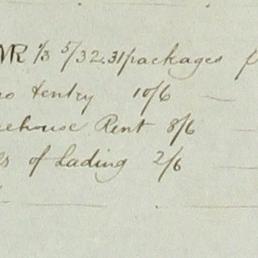 NR 1/3 5/32. 31 packages
ro Entry 10/6
ehouse Rent 8/6
s of Lading 2/6